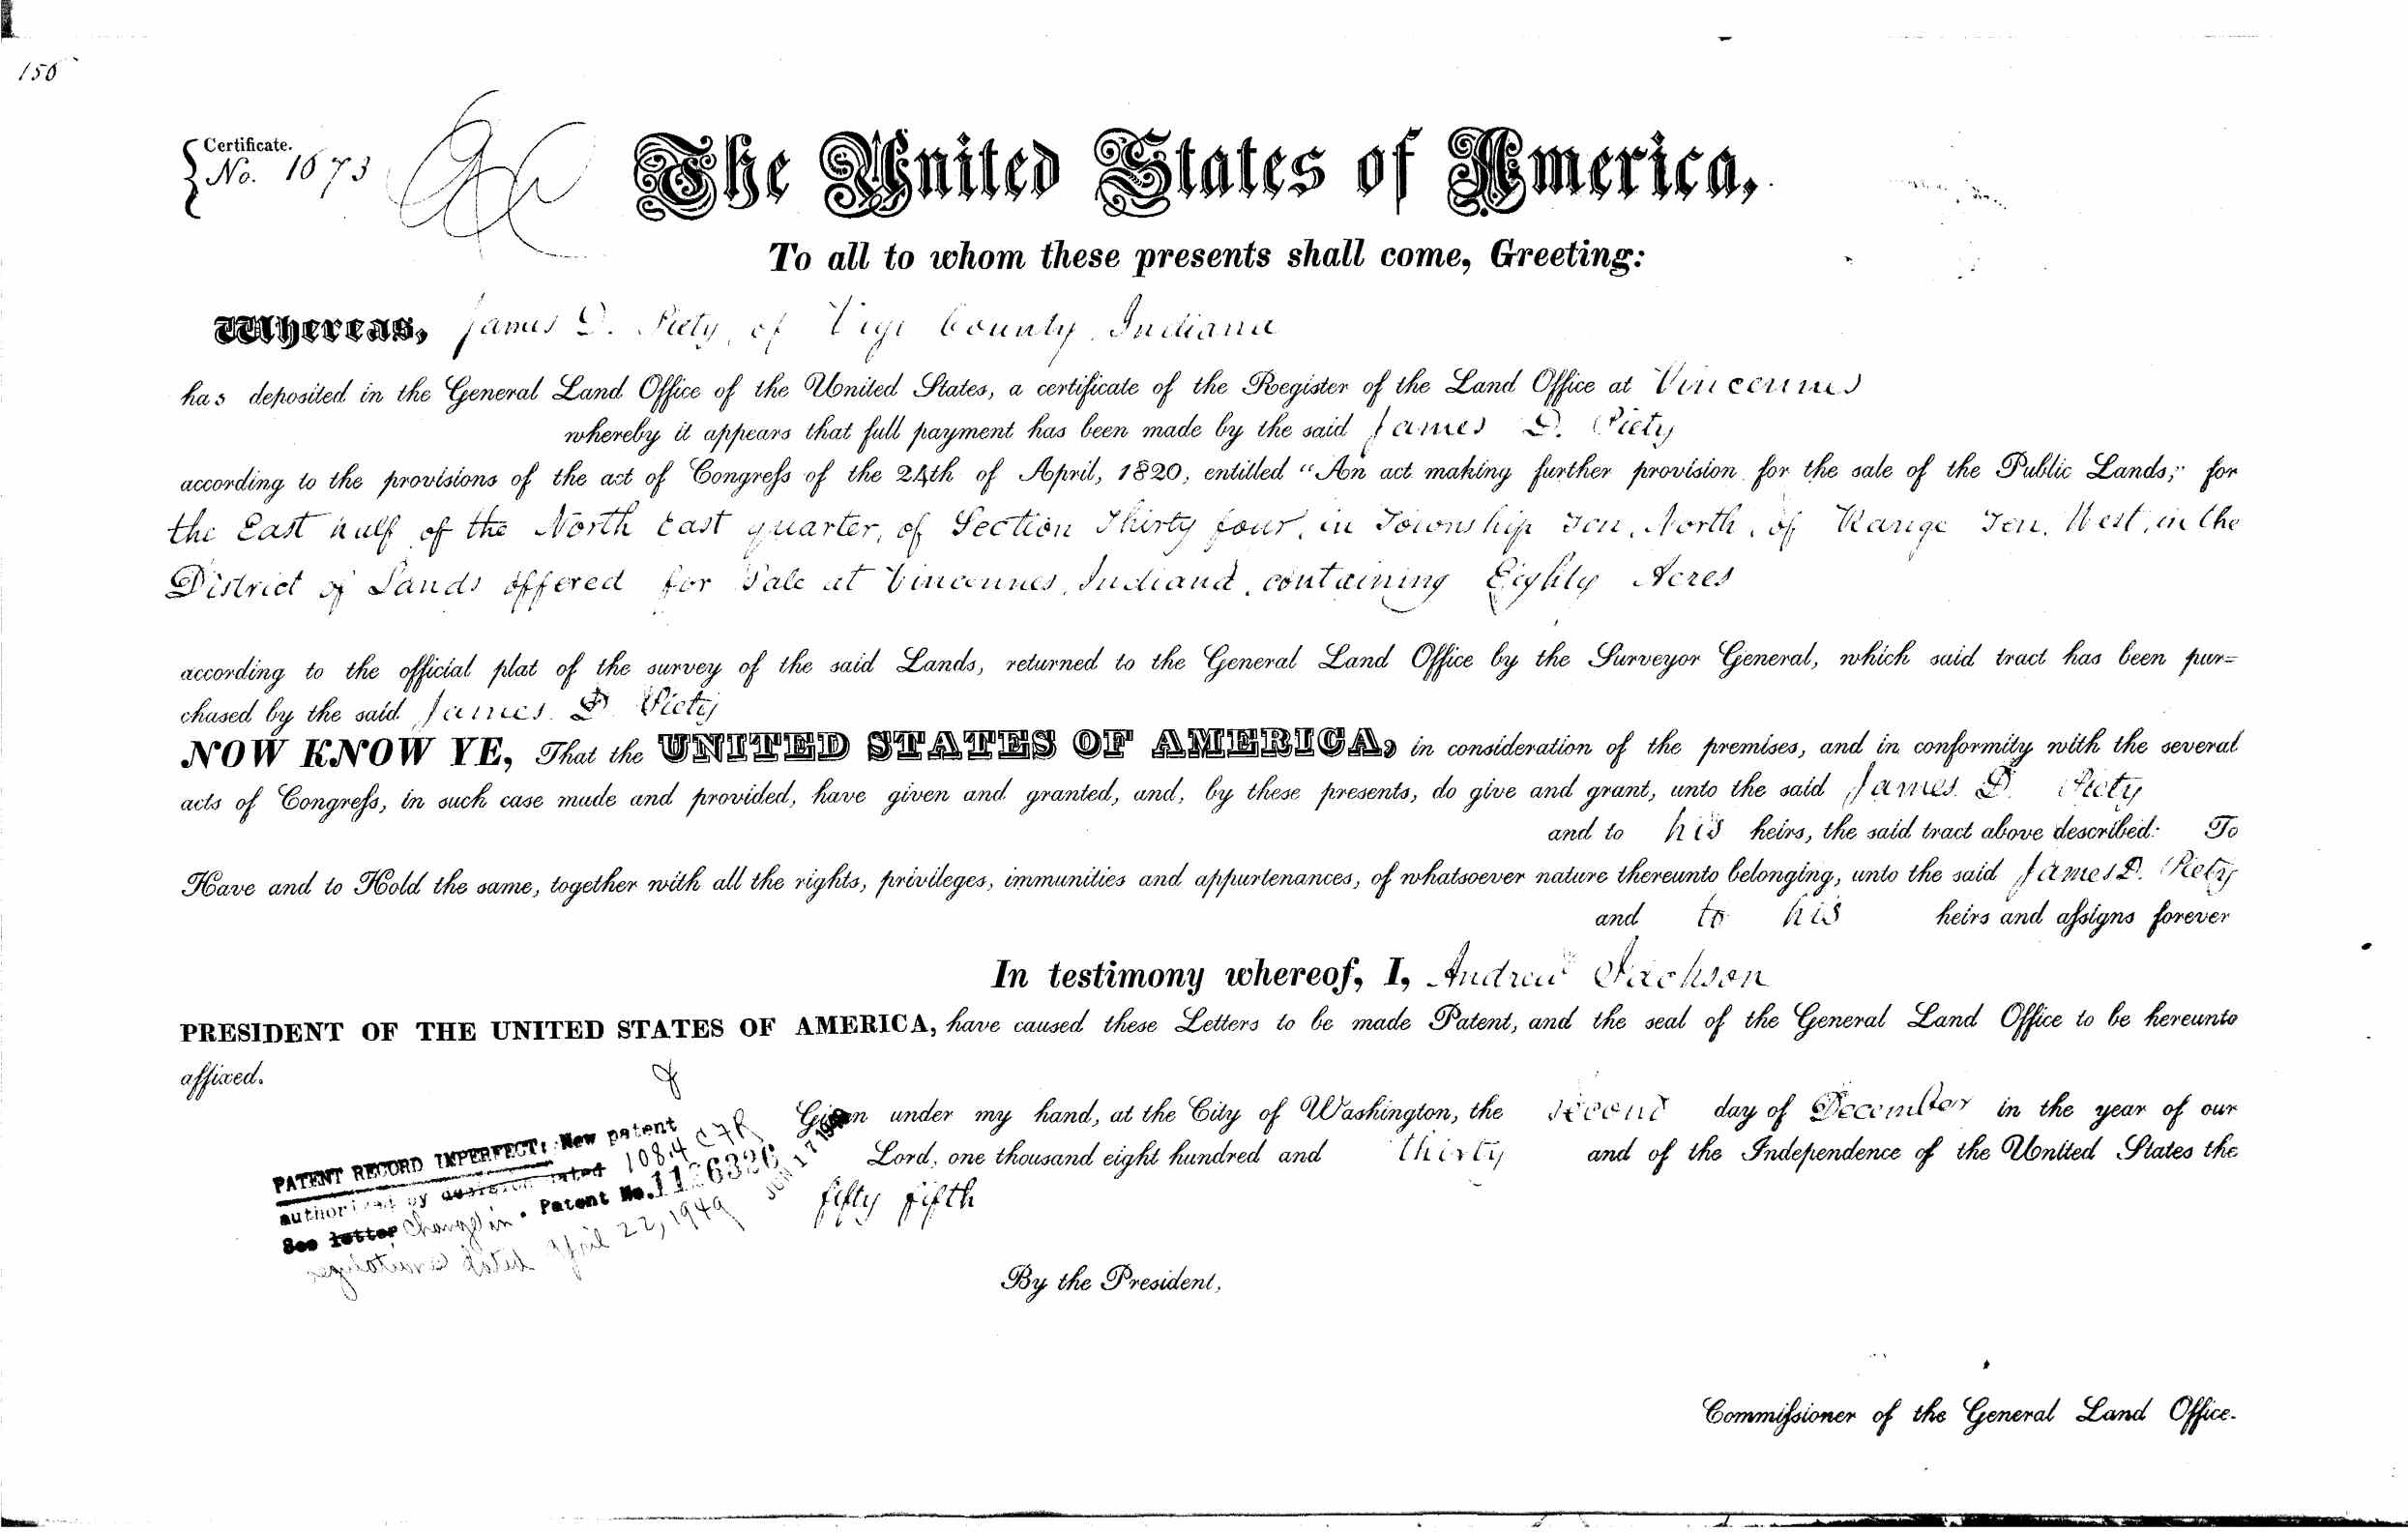 150
Certificate.
No. 1673
The United States of America,
To all to whom these presents shall come, Greeting:
Whereas, James D. Piety, of Vigo County, Indiana
has deposited in the General Land Office of the United States, a certificate of the Register of the Land Office at Vincennes
whereby it appears that full payment has been made by the said James D. Piety
according to the provisions of the act of Congress of the 24th of April, 1820, entitled "An act making further provision for the sale of the Public Lands;" for
the East half of the North East quarter, of Section Thirty four, in Township Ten, North, of Range Ten, West, in the
District of Lands offered for Sale at Vincennes, Indiana, containing Eighty Acres
according to the official plat of the survey of the said Lands, returned to the General Land Office by the Surveyor General, which said tract has been pur=
chased by the said James D. Piety
NOW KNOW YE, That the UNITED STATES OF AMERICA, in consideration of the premises, and in conformity with the several
acts of Congress, in such case made and provided, have given and granted, and, by these presents, do give and grant, unto the said James D. Piety
and to his heirs, the said tract above described: To
Have and to Hold the same, together with all the rights, privileges, immunities and appurtenances, of whatsoever nature thereunto belonging, unto the said James D. Piety
and to his heirs and assigns forever
In testimony whereof, I, Andrew Jackson
PRESIDENT OF THE UNITED STATES OF AMERICA, have caused these Letters to be made Patent, and the seal of the General Land Office to be hereunto
affixed.
Given under my hand, at the City of Washington, the second day of December in the year of our
Lord, one thousand eight hundred and thirty and of the Independence of the United States the
fifty fifth
PATENT RECORD IMPERFECT: New patent
authorized by decision dated 108.4 CFR
See letter Change in Patent No. 1126326 JUN 17 1949
regulations dated April 22, 1949
By the President,
Commissioner of the General Land Office.